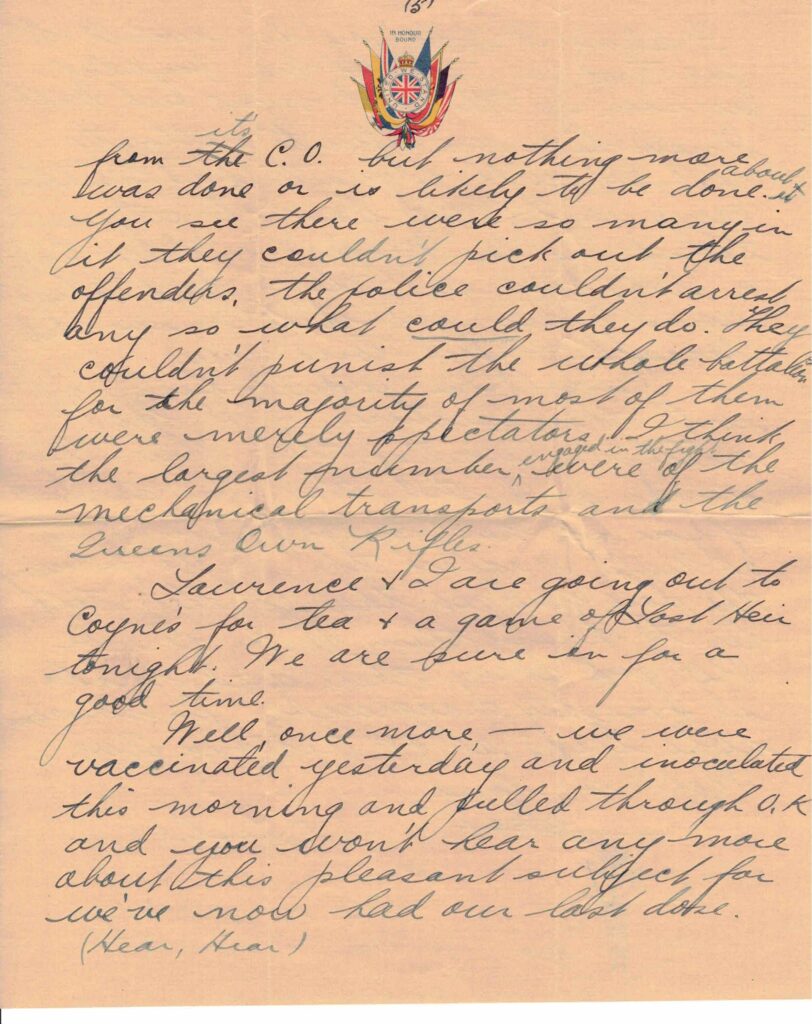 (5)
IN HONOUR
BOUND
UNITED WE STAND
it's
from the C.O. but nothing more
was done or is likely to be done about it.
You see there were so many in
it they couldn't pick out the
offenders, the police couldn't arrest
any so what could they do. They
couldn't punish the whole battalion
for the majority of most of them
were merely spectators. I think
the largest number engaged in the fight were of the
mechanical transports and the
Queens Own Rifles.
Laurence & I are going out to
Coyne's for tea & a game of Lost Heir
tonight. We are sure in for a
good time.
Well, once more — we were
vaccinated yesterday and inoculated
this morning and pulled through O.K
and you won't hear any more
about this pleasant subject for
we've now had our last dose.
(Hear, Hear)